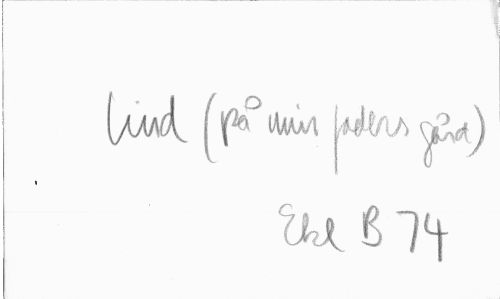 lind (på min faders gård)
Ekl B 74